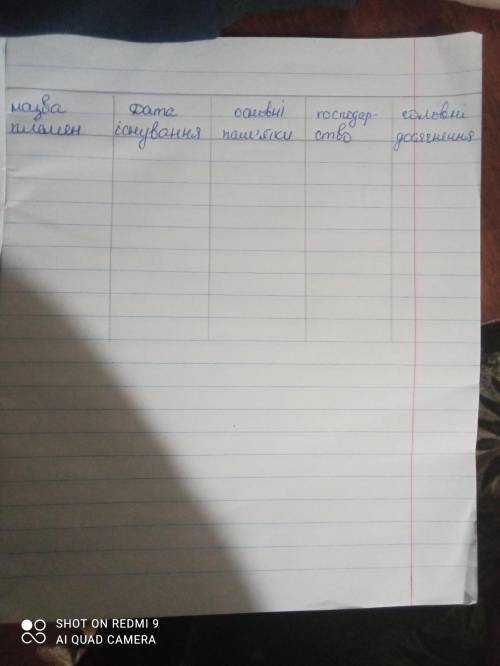 назва дата основні господар- головні
племен існування пам'ятки ство досягнення
SHOT ON REDMI 9
AI QUAD CAMERA